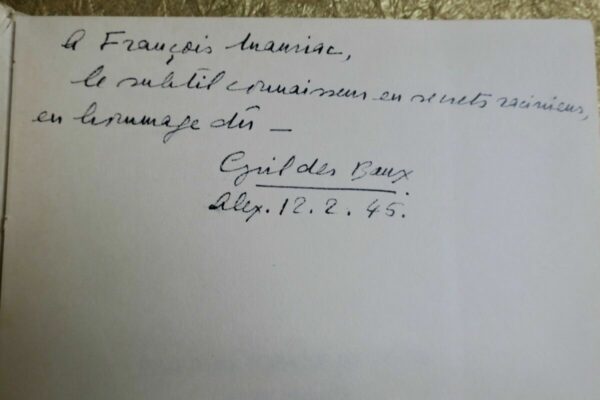 à François Mauriac,
le subtil connaisseur en secrets raciniens,
en hommage dû —
Cyril des Baux
Alex. 12. 2. 45.